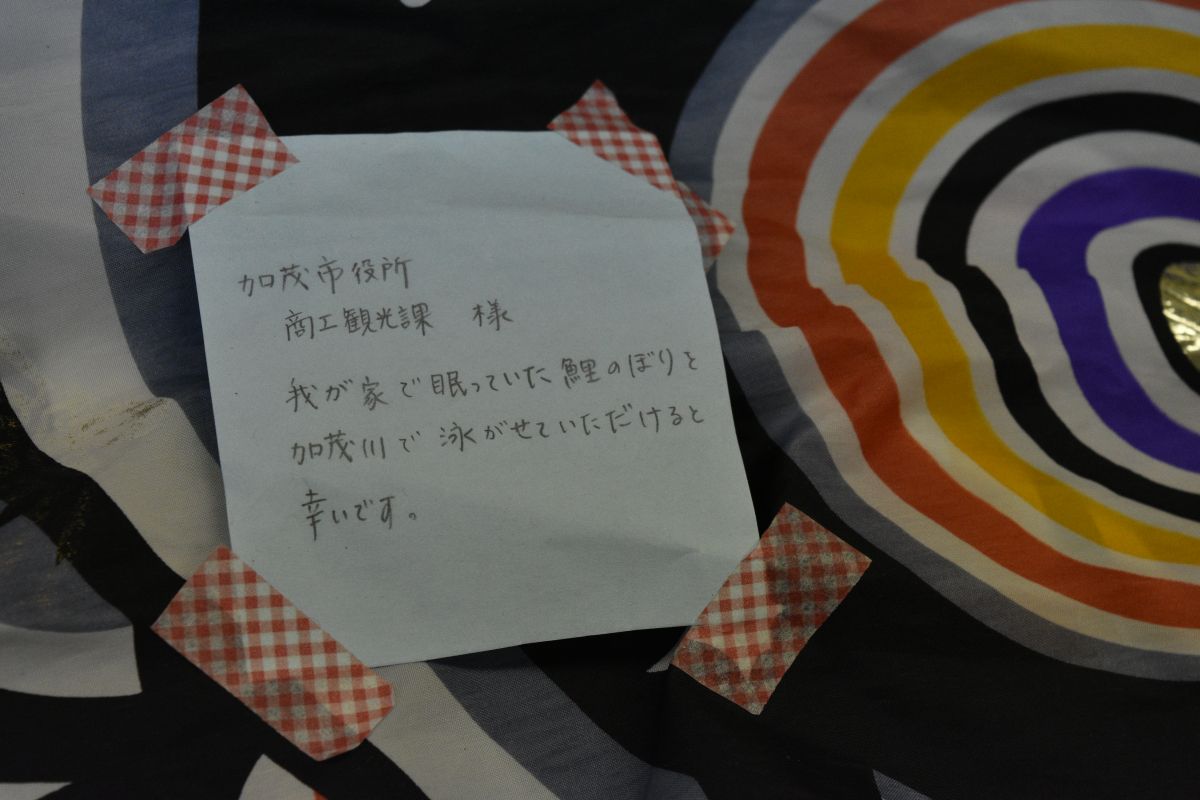 加茂市役所
商工観光課 様
我が家で眠っていた鯉のぼりを
加茂川で泳がせていただけると
幸いです。